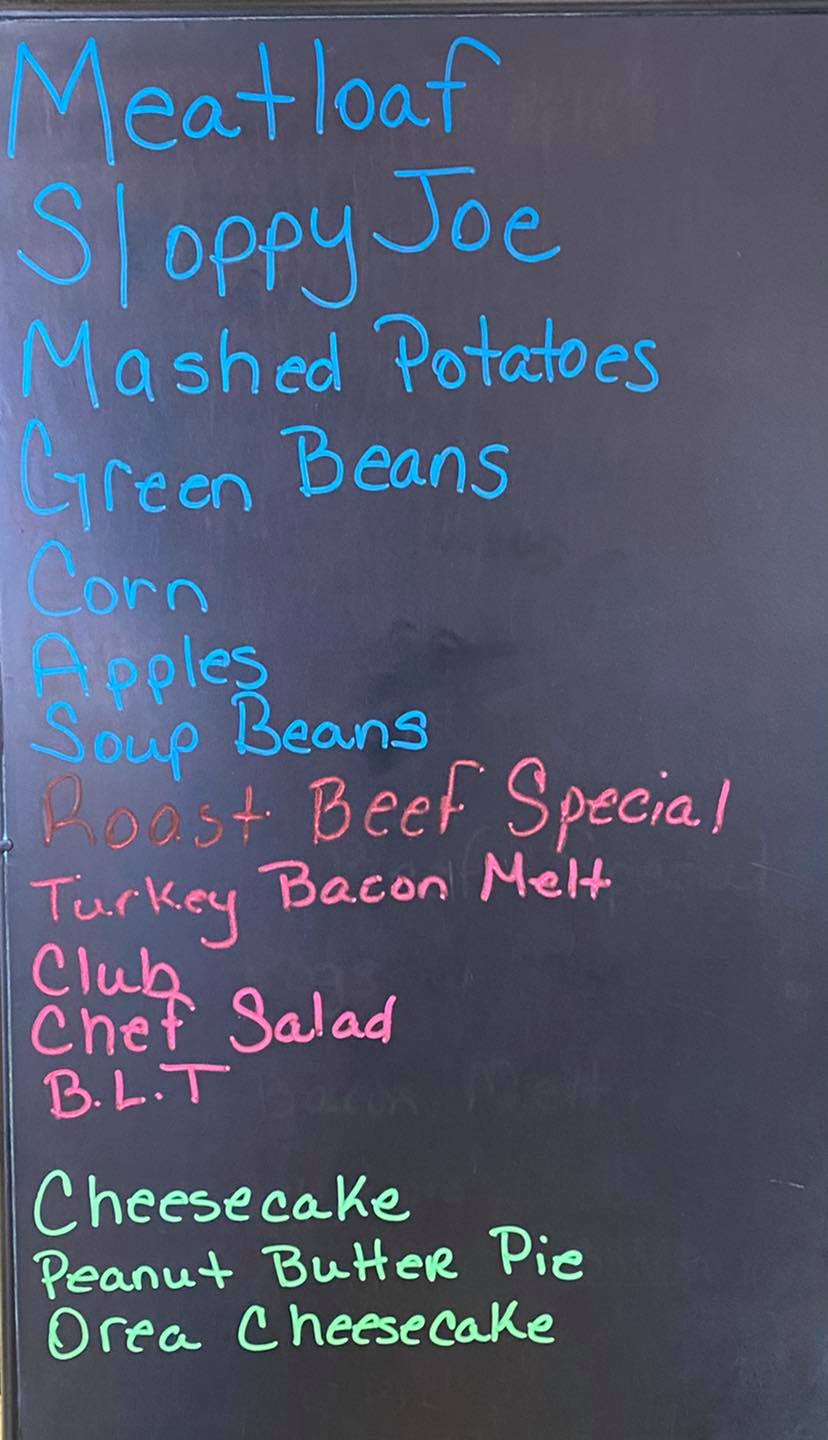 Meatloaf
Sloppy Joe
Mashed Potatoes
Green Beans
Corn
Apples
Soup Beans
Roast Beef Special
Turkey Bacon Melt
Club
Chef Salad
B.L.T
Cheesecake
Peanut Butter Pie
Orea Cheesecake